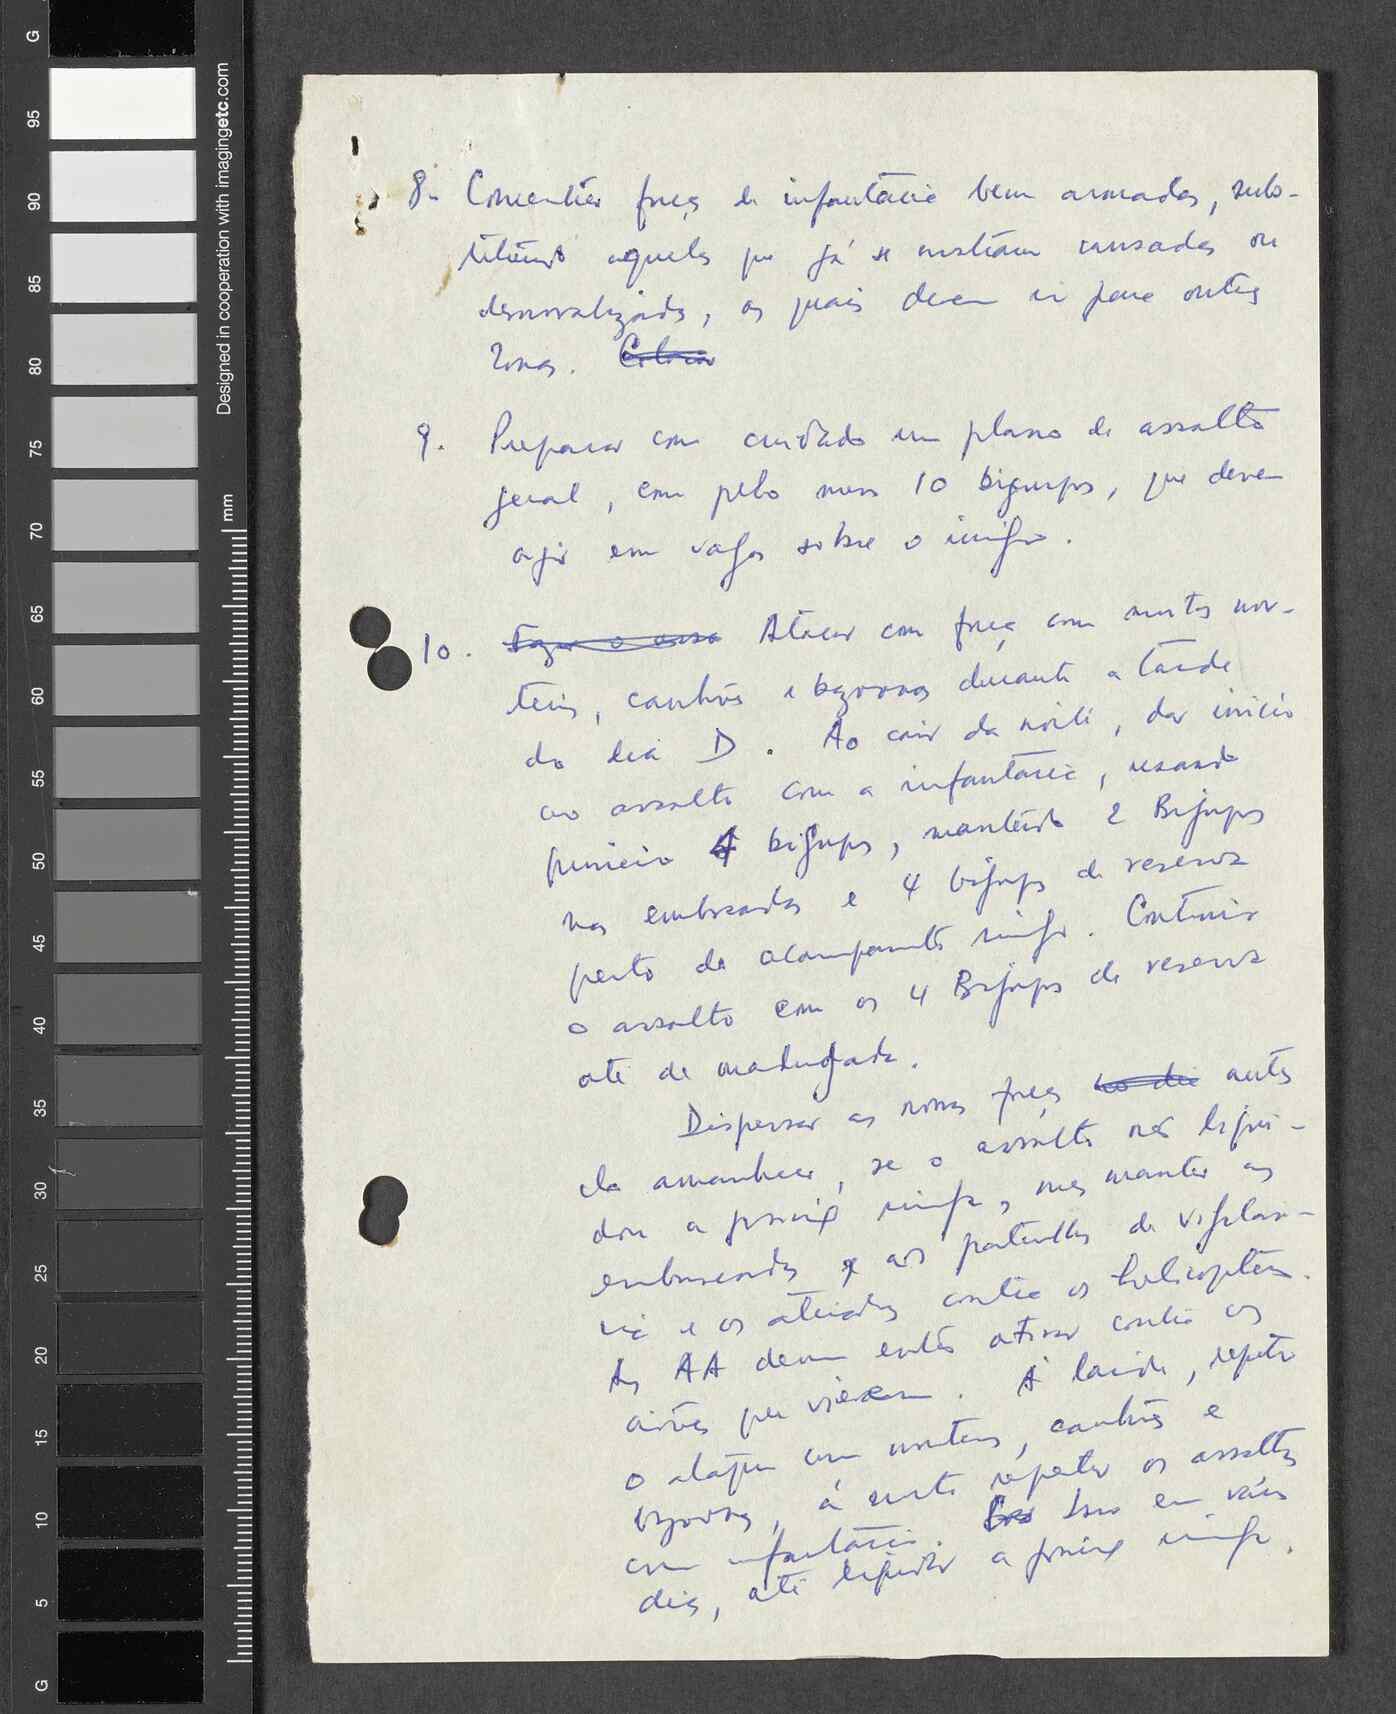 8. Concentrar forças de infantaria bem armadas, subs-
tituindo aquelas que já se mostram cansadas ou
desmoralizadas, as quais devem ir para outras
zonas. Colocar
9. Preparar com cuidado um plano de assalto
geral, com pelo menos 10 bigrupos, que devem
agir em vagas sobre o inimigo.
10. Fazer o cerco Atacar com força com muitos mor-
teiros, canhões e bazookas durante a tarde
do dia D. Ao cair da noite, dar início
ao assalto com a infantaria, usando
primeiro 4 bigrupos, mantendo 2 Bigrupos
nas emboscadas e 4 bigrupos de reserva
perto do acampamento inimigo. Continuar
o assalto com os 4 Bigrupos de reserva
até de madrugada.
Dispersar as nossas forças no dia antes
do amanhecer, se o assalto não liqui-
dou a posição inimiga, mas manter as
emboscadas e as patrulhas de vigilân-
cia e os ataques contra os helicópteros.
As AA devem então atirar contra os
aviões que vierem. À tarde, repetir
o ataque com morteiros, canhões e
bazookas, à noite repetir os assaltos
com infantaria. Isso em vários
dias, até liquidar a posição inimiga.
G
95
90
85
80
75
70
65
60
55
50
45
40
35
30
25
20
15
10
5
G
Designed in cooperation with imagingetc.com
mm